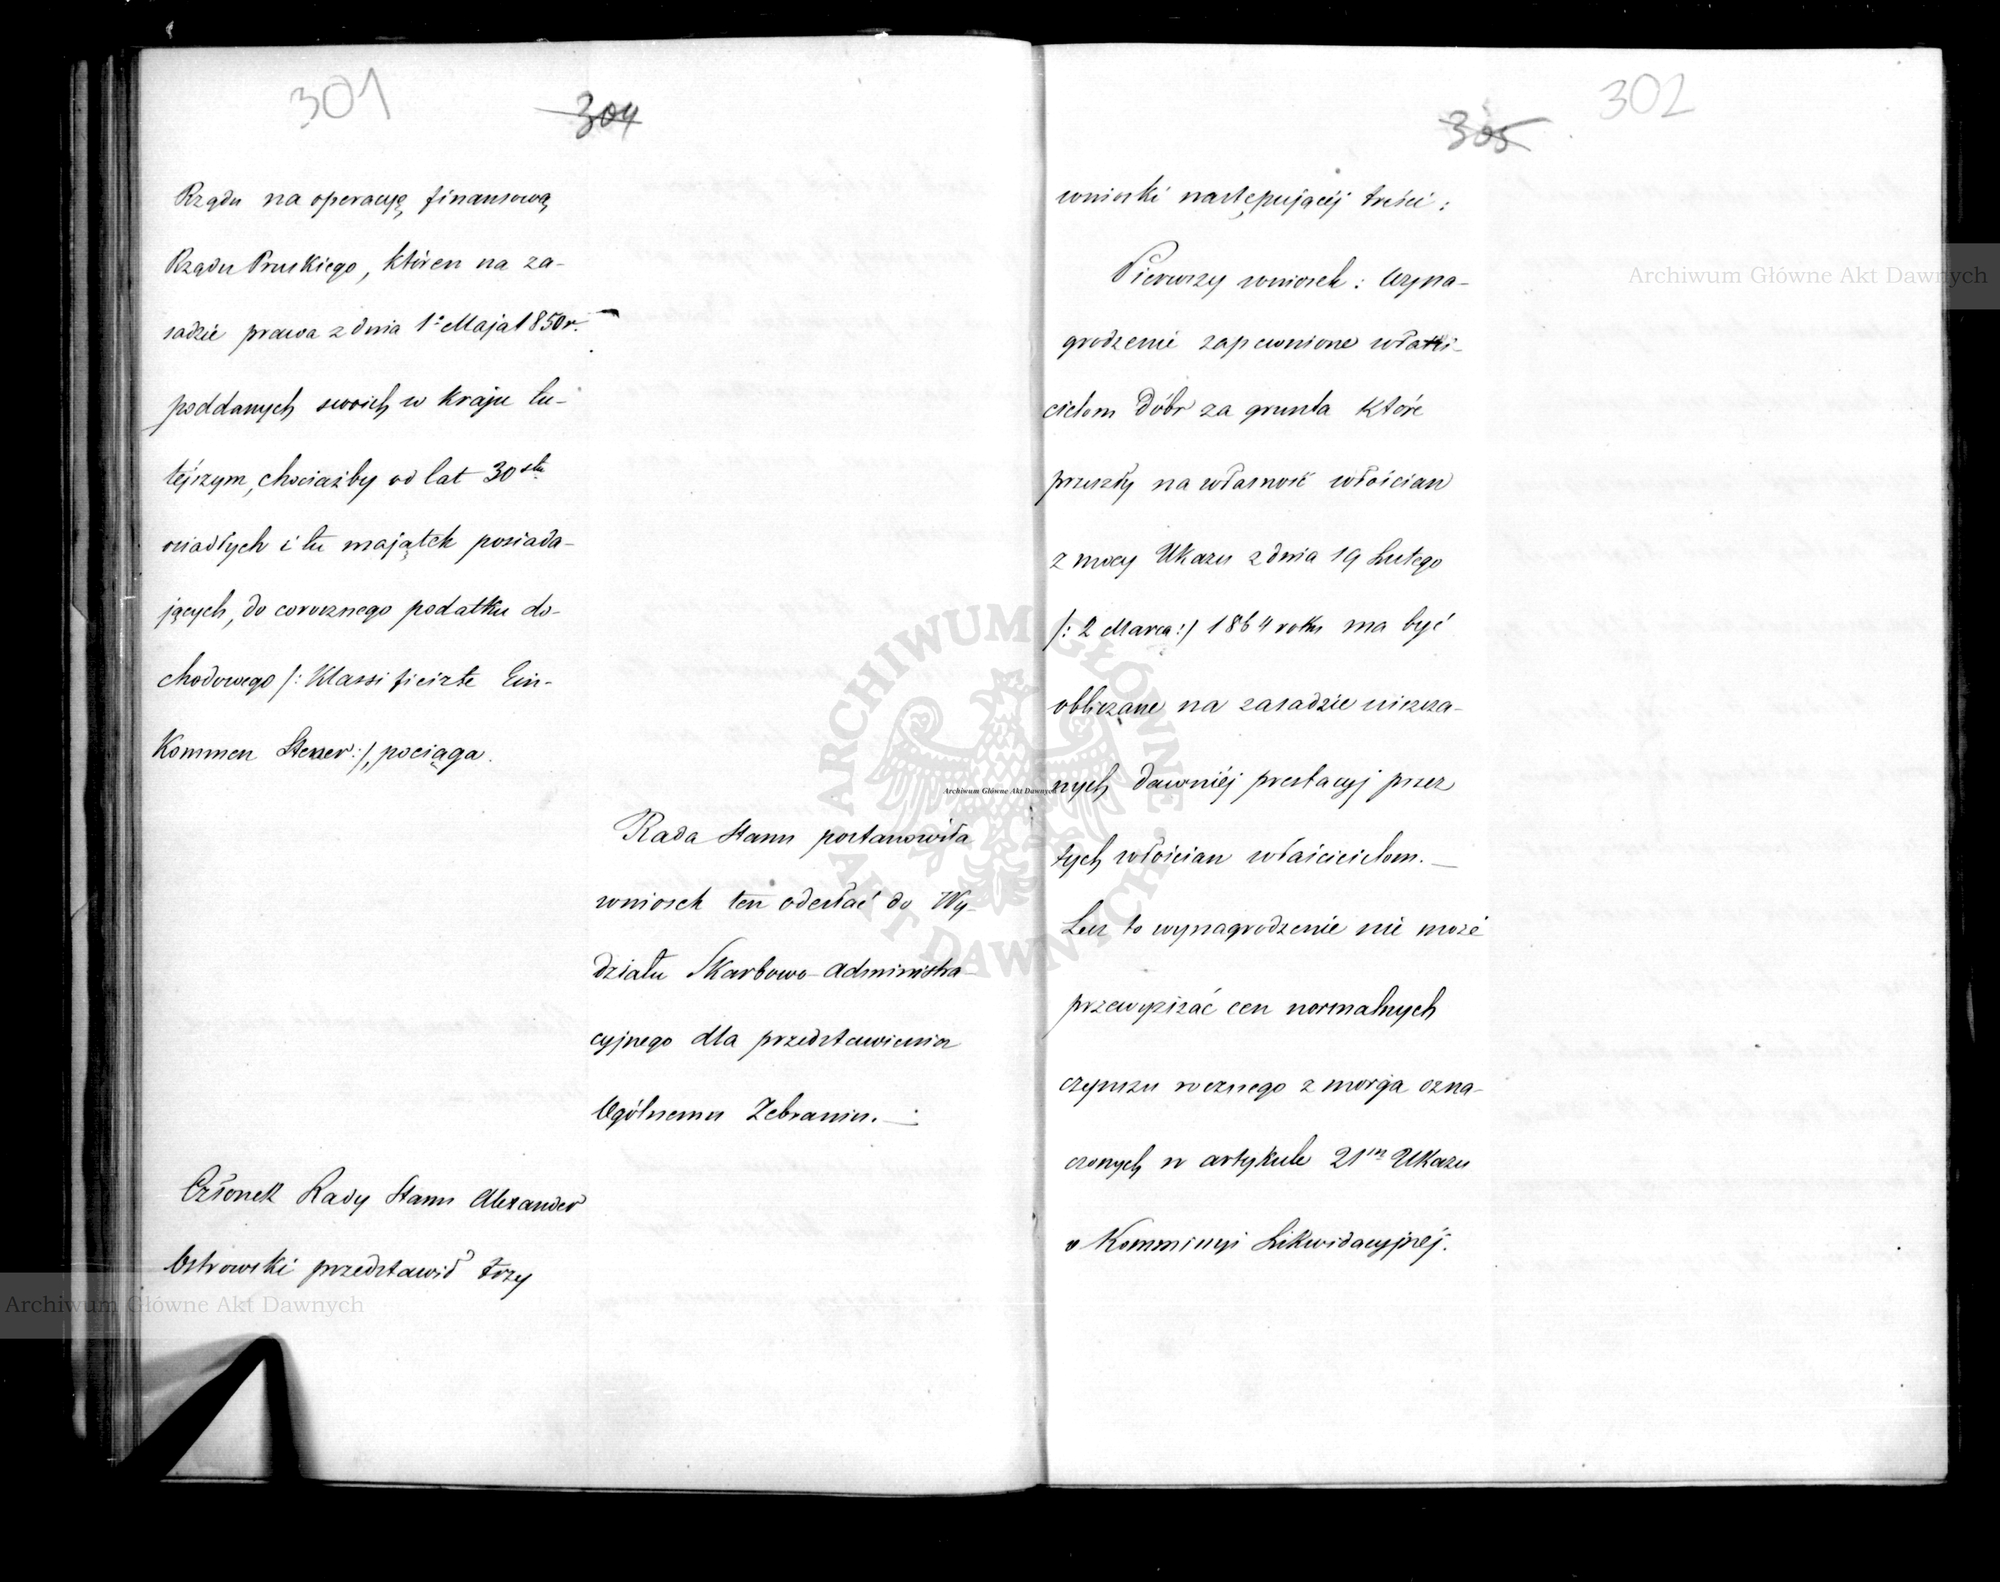 301
304
Rządu na operacyę finansową
Rządu Pruskiego, któren na za-
sadzie prawa z dnia 1º Maja 1850 r.
poddanych swoich w kraju tu-
téjszym, chociażby od lat 30stu
osiadłych i tu majątek posiada-
jących, do corocznego podatku do-
chodowego /: Klassificirte Ein-
Kommen Steuer :/, pociąga.
Rada Stanu postanowiła
wniosek ten odesłać do Wy-
działu Skarbowo-Administra-
cyjnego dla przedstawienia
Ogólnemu Zebraniu.
Członek Rady Stanu Alexander
Ostrowski przedstawił trzy
302
305
wnioski następującéj treści:
Pierwszy wniosek: Wyna-
grodzenie zapewnione właści-
cielom dóbr za grunta które
przeszły na własność włościan
z mocy Ukazu z dnia 19 Lutego
/: 2 Marca :/ 1864 roku ma być
obliczane na zasadzie uiszcza-
nych dawniéj prestacyj przez
tych włościan właścicielom. —
Lecz to wynagrodzenie nie może
przewyższać cen normalnych
czynszu rocznego z morga ozna-
czonych w artykule 21m Ukazu
o Kommissyi Likwidacyjnéj.
Archiwum Główne Akt Dawnych
Archiwum Główne Akt Dawnych
Archiwum Główne Akt Dawnych
ARCHIWUM GŁÓWNE AKT DAWNYCH